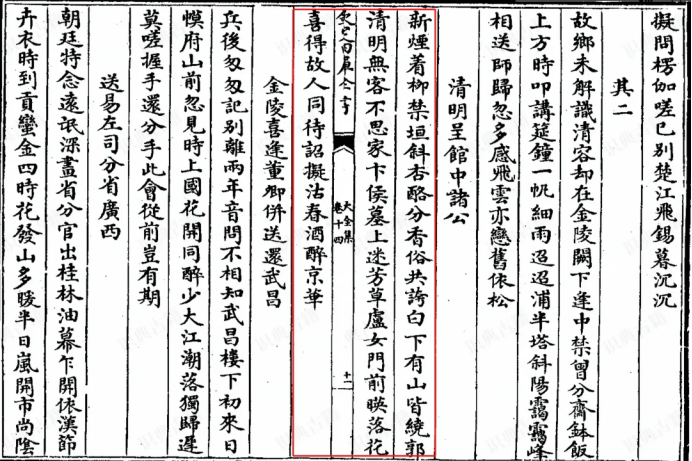 擬問楞伽嗟已別楚江飛錫暮沉沉
其二
故鄉未解識清容却在金陵闕下逢中禁曾分齋鉢飯
上方時叩講筵鐘一帆細雨迢迢浦半塔斜陽靄靄峰
相送師歸忽多感飛雲亦戀舊依松
清明呈館中諸公
新煙着柳禁垣斜杏酪分香俗共誇白下有山皆繞郭
清明無客不思家卞侯墓上迷芳草盧女門前映落花
大全集
卷十四
十二
喜得故人同待詔擬沽春酒醉京華
金陵喜逢董卿併送還武昌
兵後匆匆記別離兩年音問不相知武昌樓下初來日
幙府山前忽見時上國花開同醉少大江潮落獨歸遲
莫嗟握手還分手此會從前豈有期
送易左司分省廣西
朝廷特念遠氓深畫省分官出桂林油幕乍開依漢節
卉衣時到貢蠻金四時花發山多暖半日嵐開市尚陰